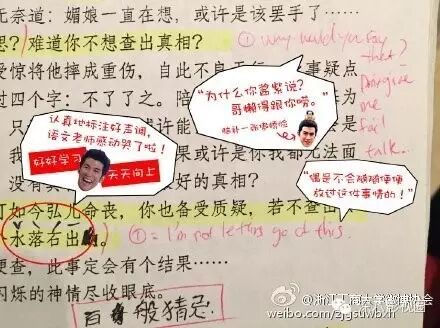 无奈道：媚娘一直在想，或许是该罢手了……
罢？难道你不想查出真相？
① why would you say that?
受惊将他摔成重伤，自此不良
事疑点
过四个字：不了了之。陪
“为什么你酱紫说？
哥懒得跟你唠。”
临补一张傲娇脸
me
fail
talk.
认真地标注好声调，
语文老师感动哭了啦！
好好学习
天天向上
果或许是你我都无法面
好的真相？
“偶是不会随随便便
放过这件事情的！”
可如今弘儿命丧，你也备受质疑，若不查出
水落石出
① = I'm not let this go of this.
便查，此事定会有个结果……
闪烁的神情尽收眼底。
百般猜忌
@浙江工商大学微博协会
weibo.com/zjgsuwbxh